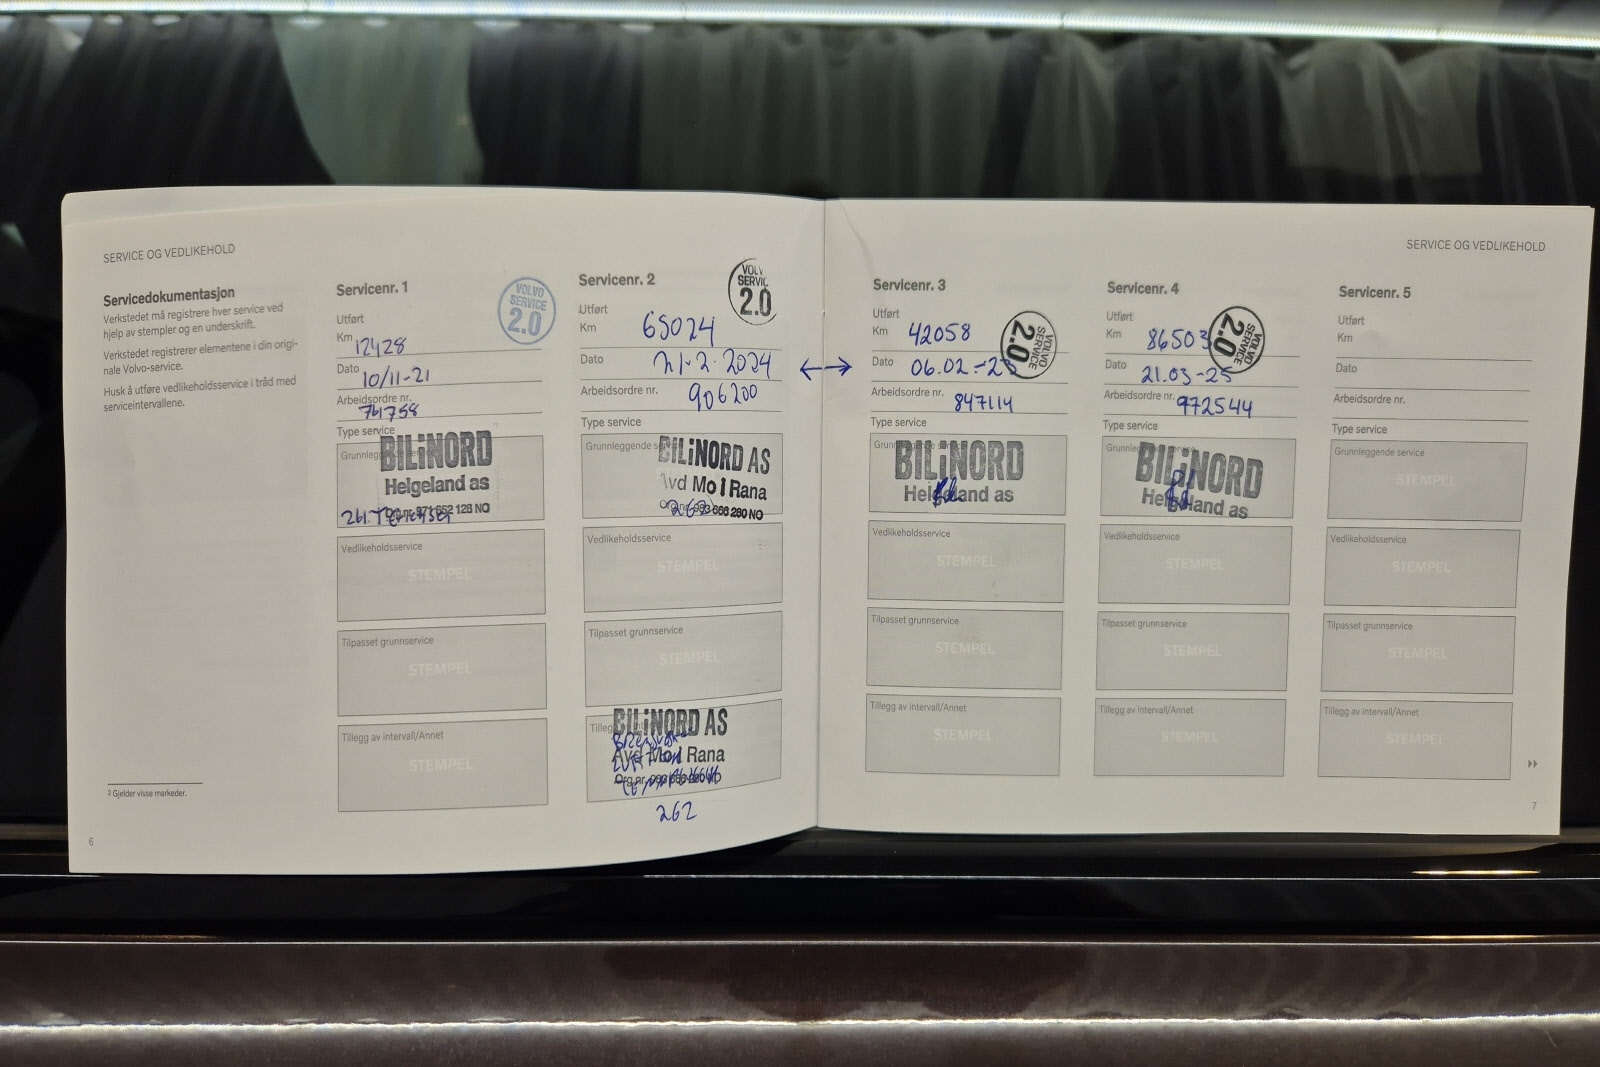 SERVICE OG VEDLIKEHOLD
Servicedokumentasjon
Verkstedet må registrere hver service ved
hjelp av stempler og en underskrift.
Verkstedet registrerer elementene i din origi-
nale Volvo-service.
Husk å utføre vedlikeholdsservice i tråd med
serviceintervallene.
2 Gjelder visse markeder.
6
Servicenr. 1
VOLVO
SERVICE
2.0
Utført
Km 12428
Dato 10/11-21
Arbeidsordre nr.
741758
Type service
Grunnleggende service
BILiNORD
Helgeland as
128 NO
261.
Vedlikeholdsservice
STEMPEL
Tilpasset grunnservice
STEMPEL
Tillegg av intervall/Annet
STEMPEL
Servicenr. 2
VOLV
SERVIC
2.0
Utført
Km 65024
Dato 21.2.2024
Arbeidsordre nr. 906200
Type service
Grunnleggende
BILiNORD AS
Avd Mo I Rana
Org.nr. 993 666 280 NO
262
Vedlikeholdsservice
STEMPEL
Tilpasset grunnservice
STEMPEL
Tillegg
BILiNORD AS
Avd Mo I Rana
Org.nr.
262
SERVICE OG VEDLIKEHOLD
Servicenr. 3
VOLVO
SERVICE
2.0
Utført
Km 42058
Dato 06.02-23
Arbeidsordre nr. 847114
Type service
BILiNORD
Helgeland as
Vedlikeholdsservice
STEMPEL
Tilpasset grunnservice
STEMPEL
Tillegg av intervall/Annet
STEMPEL
Servicenr. 4
VOLVO
SERVICE
2.0
Utført
Km 86503
Dato 21.03-25
Arbeidsordre nr. 972544
Type service
Grunnleggende service
BILiNORD
Helgeland as
Vedlikeholdsservice
STEMPEL
Tilpasset grunnservice
STEMPEL
Tillegg av intervall/Annet
STEMPEL
Servicenr. 5
Utført
Km
Dato
Arbeidsordre nr.
Type service
Grunnleggende service
STEMPEL
Vedlikeholdsservice
STEMPEL
Tilpasset grunnservice
STEMPEL
Tillegg av intervall/Annet
STEMPEL
7